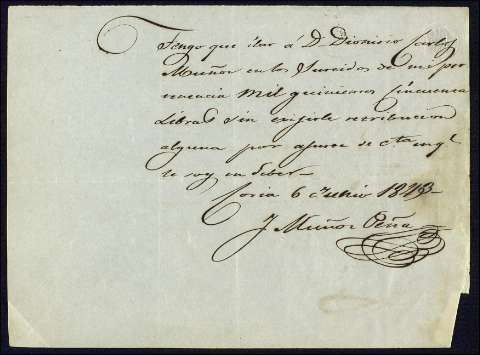 Tengo que dar á D. Dionicio Carlos
Muñoz en los Surcidos de mi per
tenencia Mil quinientas Cincuenta
Libras sin exijirle retribucion
alguna por ajuste de Cta. en q.e
le soy en deber
Coria 6 Junio 1843
J Muñoz Peña